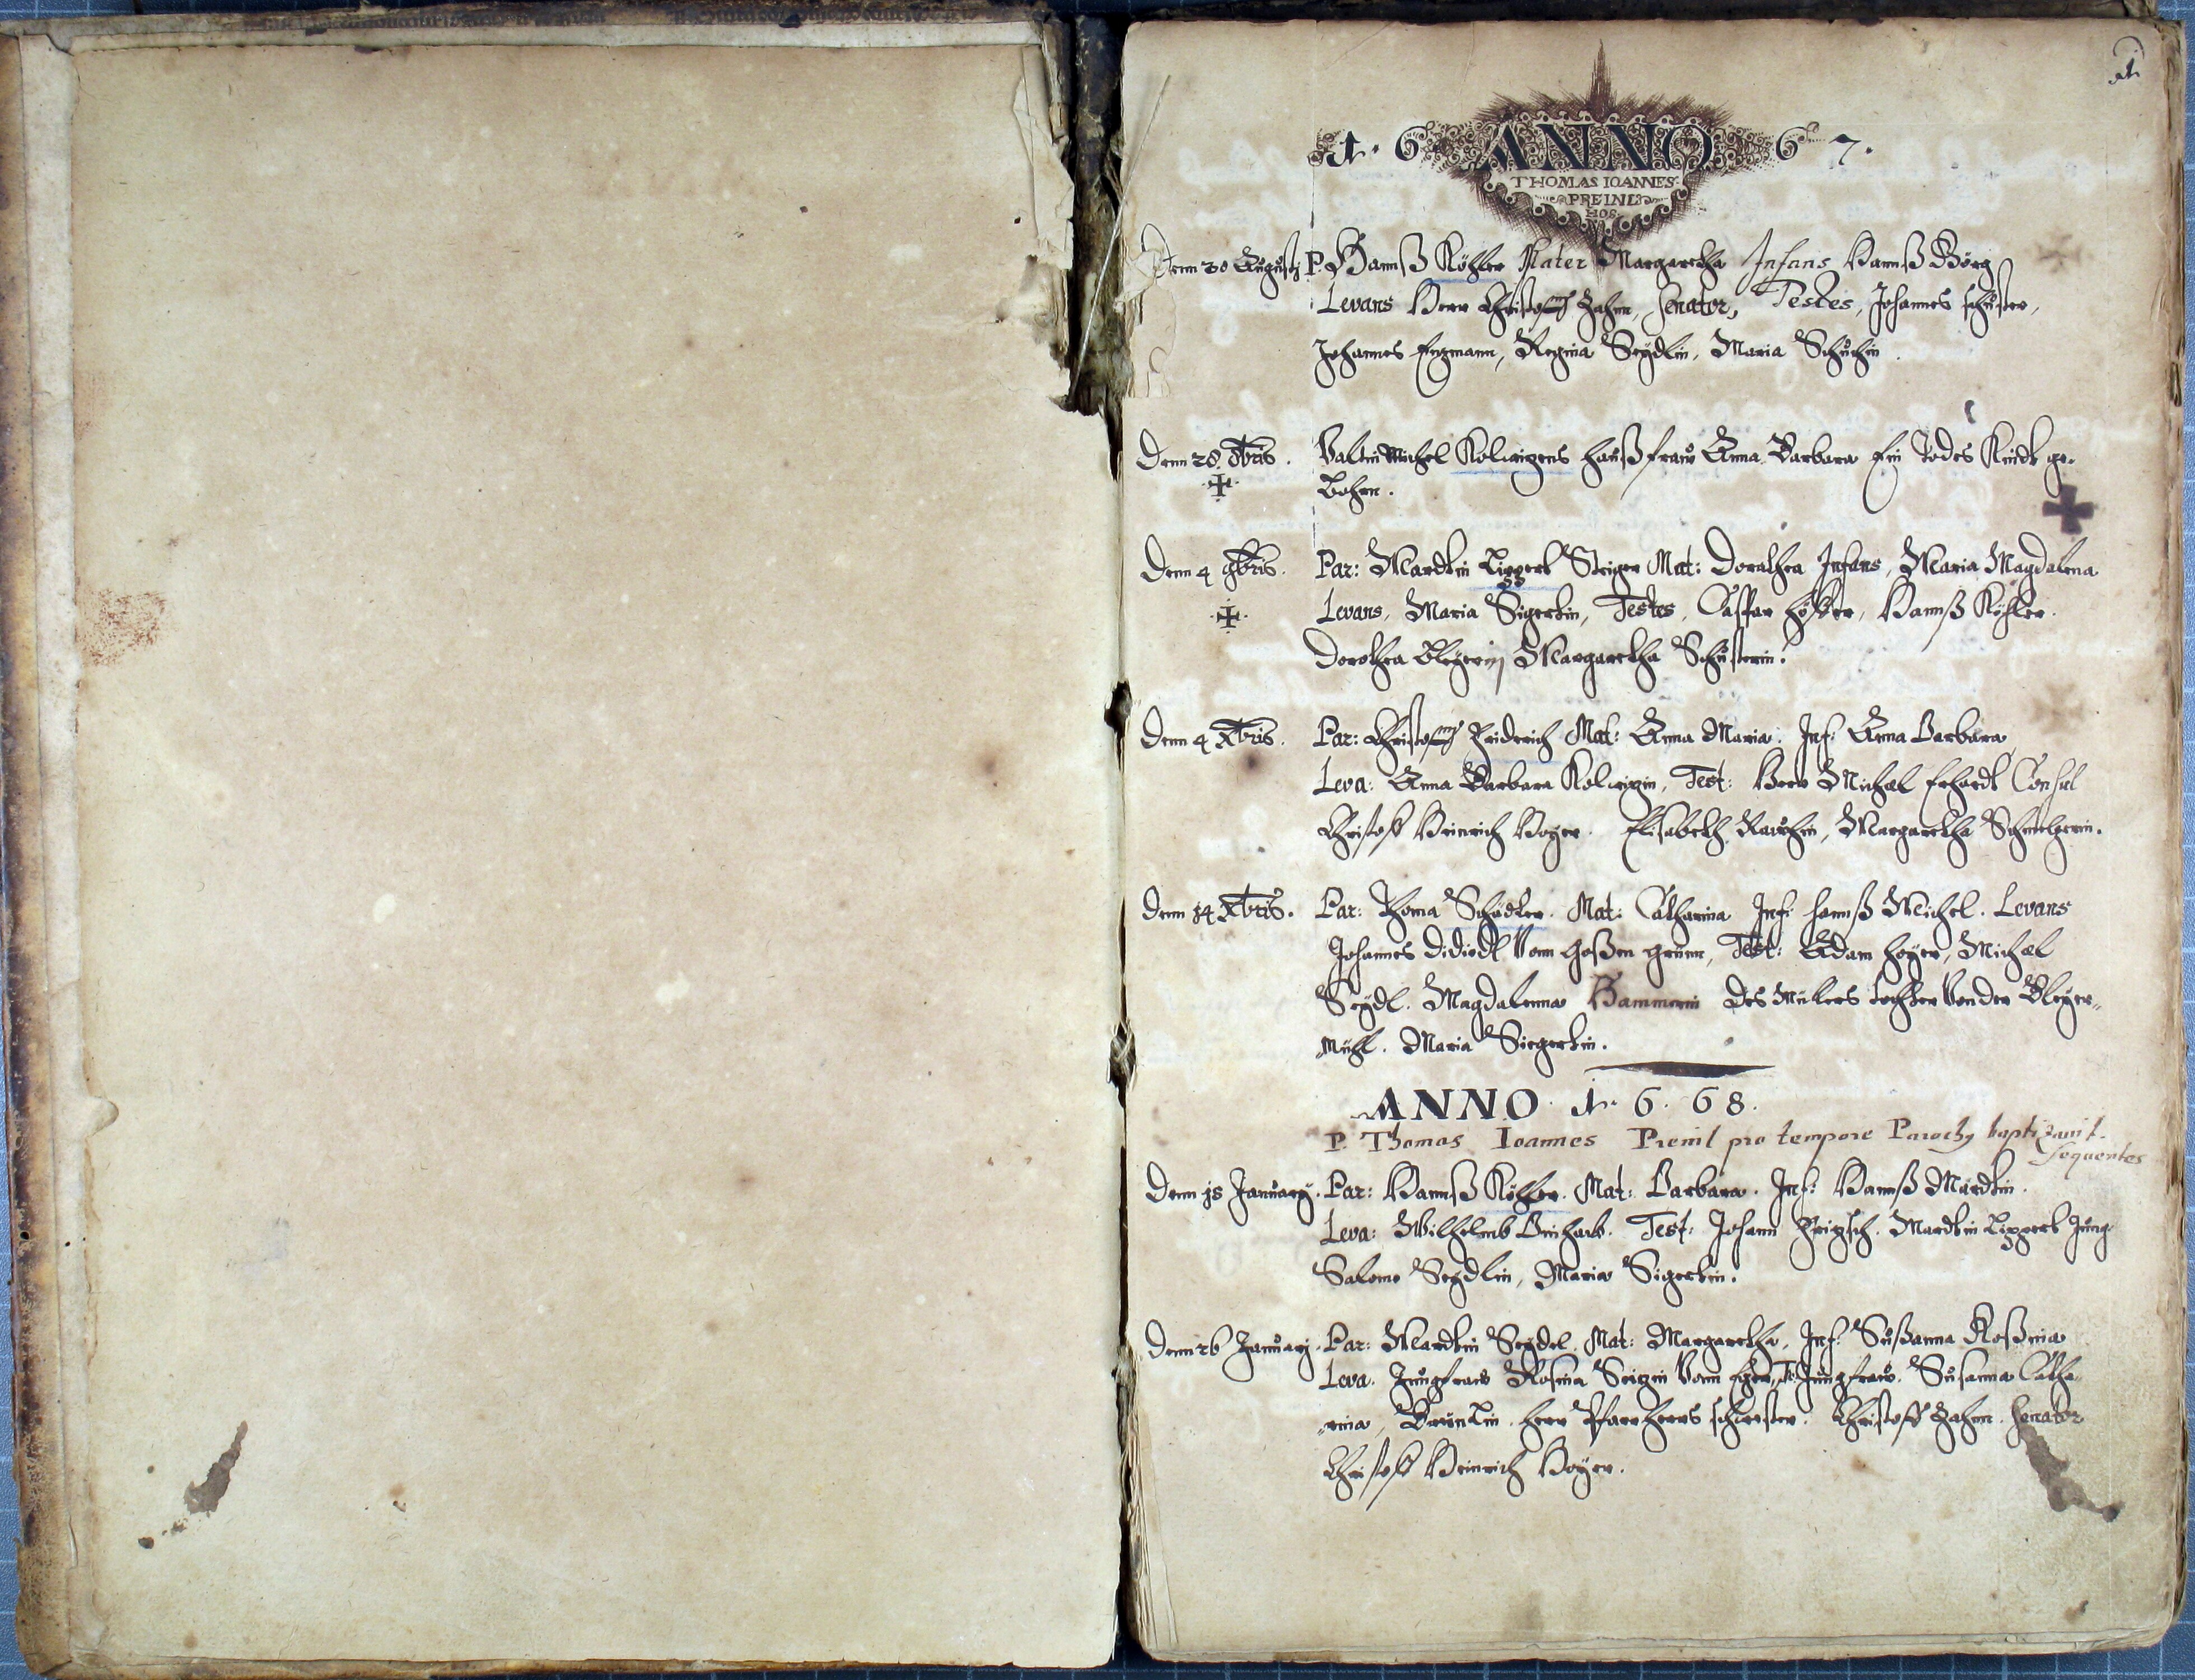 1
1. 6 ANNO 6 7.
THOMAS IOANNES
PREINL
HOS
Denn 20 Augusti P. Hannß Köhler Mater Margaretha Infans Hannß Görg
Levans Herr Christoff Zahn, Senator, Testes, Johannes schuster,
Johannes Enzmann, Regina Seydlin, Maria Schuhin.
Denn 28. 8bris. Valtin Michel Kolwizens haußfraw Anna Barbara Ein Todes Kindt ge-
bohrn.
Denn 4 9bris. Par: Mardtin Lippert Steiger Mat: Dorathea Infans, Maria Magdalena
Levans, Maria Sigertin, Testes, Caspar, Hannß Köhler.
Dorothea Margaretha Schusterin.
Denn 4 Xbris. Par: Christoff Friderich Mat: Anna Maria. Inf: Anna Barbara
Leva: Anna Barbara Kolwizin, Test: Herr Michael Erhardt Consul
Christoff Heinrich Hoyer. Elisabeth Rauhin, Margaretha Schmelzerin.
Denn 14 Xbris. Par: Thoma Schädler. Mat: Catharina Inf: hannß Michel. Levans
Johannes Didiedl Vom goßen grünn, Test: Adam hoyer, Michael
Seydl. Magdalenna Hammerin des Mülers tochter Von der Bleyer-
Mühl. Maria Siegertin.
ANNO 1. 6. 68.
P. Thomas Ioannes Preinl pro tempore Parochy baptizavit
sequentes
Denn 18 January. Par: Hannß Köhler. Mat: Barbara. Inf: Hannß Mardtin.
Leva: Wilhelmb. Test: Johann Fritzsch. Mardtin Lippert Jung
Salome Seydlin, Maria Sigertin.
Denn 26 January. Par: Mardtin Seydel. Mat: Margaretha, Inf: Sußanna Roßina
Leva: Jungfraw Rosina Vonn Eger, T: Jungfraw. Susanna Catha-
rina, herr Pfarrherrs schwester. Christoff Zahn. Senator
Christoff Heinrich Hoyer.